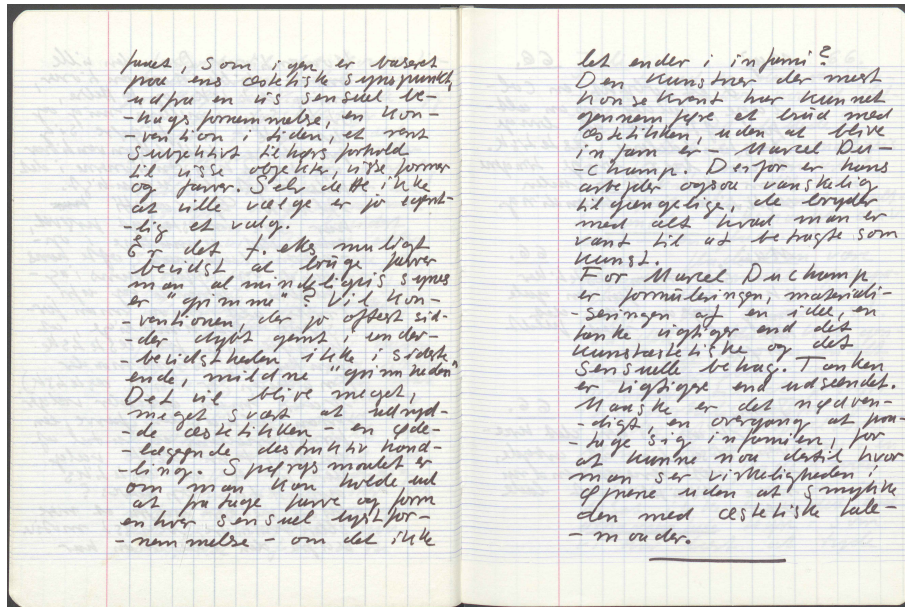 fundet, som igen er baseret
paa ens æstetiske synspunkt,
udfra en vis sensuel be-
-hags fornemmelse, en kon-
-vention i tiden, et rent
subjektivt tilhørsforhold
til visse objekter, visse former
og farver. Selv dette ikke
at ville vælge er jo egent-
-lig et valg.
Er det f. eks. muligt
bevidst at bruge farver
man almindeligvis synes
er "grimme"? Vil kon-
-ventionen, der jo oftest sid-
-der dybt gemt i under-
-bevidstheden ikke i sidste
ende, mildne "grimheden"
Det vil blive meget,
meget svært at udryd-
-de æstetikken - en øde-
-læggende, destruktiv hand-
-ling. Spørgsmaalet er
om man kan holde ud
at fratage farve og form
enhver sensuel lystfor-
-nemmelse - om det ikke
let ender i infami?
Den kunstner der mest
konsekvent har kunnet
gennemføre et brud med
æstetikken, uden at blive
infam er - Marcel Du-
-champ. Derfor er hans
arbejder ogsaa vanskelig
tilgængelige, de bryder
med alt hvad man er
vant til at betragte som
kunst.
For Marcel Duchamp
er formuleringen, materiali-
-seringen af en idé, en
tanke vigtiger end det
kunstæstetiske og det
sensuelle behag. Tanken
er vigtigere end udseendet.
Maaske er det nødven-
-digt, en overgang at paa-
-tage sig infamien, for
at kunne naa dertil hvor
man ser virkeligheden i
øjnene uden at smykke
den med æstetiske tale-
-maader.